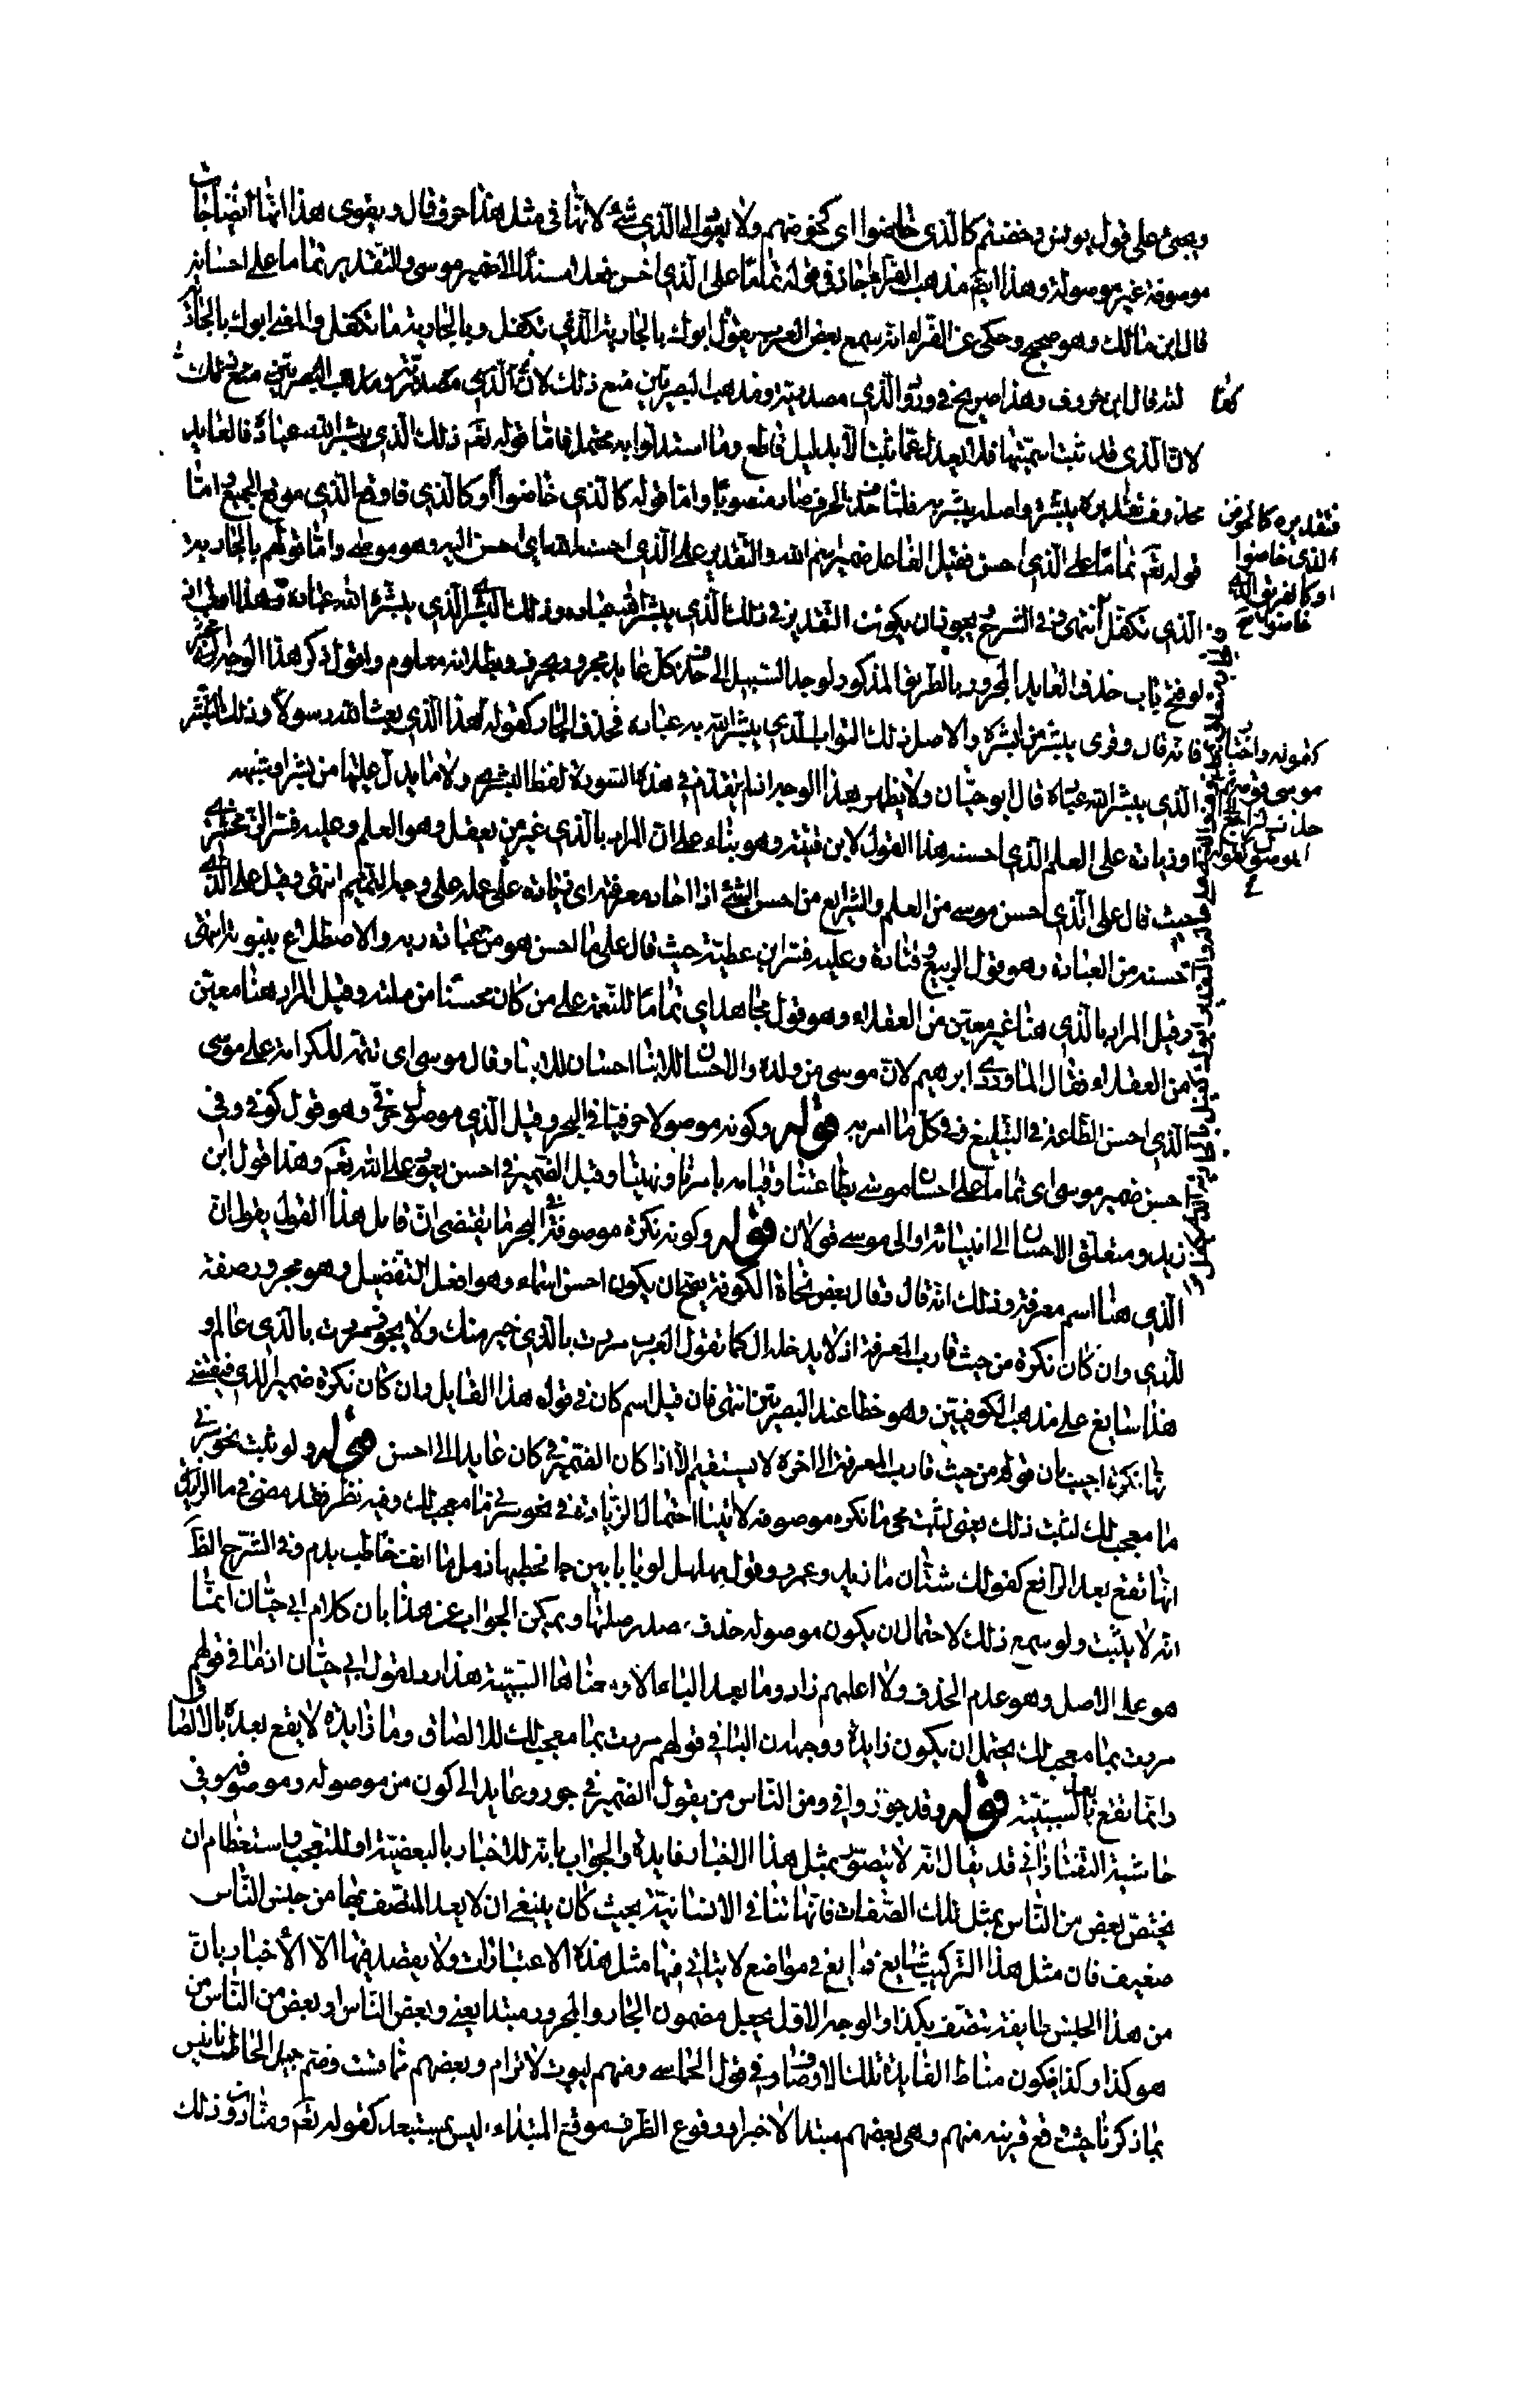 ويجئ على قول يونس وخضتم كالذي خاضوا اى كخوضهم ولا يعود الى الذي شئ لانها في مثل هذا حرف قال ويقوى هذا انها ايضا جات
موصوفة غير موصولة وهذا ايضم مذهب الفراء اجاز في قوله تماما على الذي احسن بعد مسندا الا ضمير موسى والتقدير تماما على احسانه
قال ابن مالك وهو صحيح وحكى عن الفراء انه سمع بعض العرب يقول ابوك بالجارية الذي تكفل وبالجارية ما تكفل والمعنى ابوك بالجارية
كفا لته قال ابن خروف وهذا صريح في ورود الذي مصدرية ومذهب البصريين منع ذلك
لان الذي قد ثبت اسميتها فلا يعدل عما ثبت الا بدليل قاطع وما استدلوا به محتمل فاما قوله تعم ذلك الذي يبشر الله عباده فالعايد
محذوف تقديره يبشره واصله يبشر به فلما حذف الحرف صار منصوبا واما قوله كالذي خاضوا او كالذي فاوقع الذي موقع الجميع واما
قوله تعم تماما على الذي احسن فقيل الفاعل ضمير اسم الله والتقدير على الذي احسنه الله اي احسن اليه وهو موسى واما قولهم بالجارية
الذي تكفل انتهى وفي الشرح يجوز ان يكون التقدير في ذلك الذي يبشر الله عباده وذلك التبشير الذي يبشره الله عباده
لو فتح باب حذف العايد المجرور بالطريق المذكور لوجد السبيل الى حذف كل عايد مجرور بحرف وبطلانه معلوم واقول ذكر هذا الوجه
فانه قال وقرى يبشر من ابشره والاصل ذلك الثواب الذي يبشر الله به عباده فحذف الجار كقوله اهذا الذي بعث الله رسولا وذلك التبشير
الذي يبشر الله عباده قال ابو حيان ولا يظهر هذا الوجه اذ لم يتقدم في هذه السورة لفظ البشرى ولا ما يدل عليها من بشر او شبهه
او زيادة على العلم الذي احسنه هذا القول لابن قتيبة وهو بناء على ان المراد بالذي غير من يعقل وهو العلم وعليه فسر الزمخشري
حيث قال على الذي احسن موسى من العلم والشرايع من احسن الشئ اذا اجاد معرفته اى زيادة على علمه على وجه التتميم انتهى وقيل على الذي
احسنه من العبادة وهو قول الربيع وقتادة وعليه فسر ابن عطية حيث قال على ما احسن هو من عبادة ربه والاضطلاع بنبوته انتهى
وقيل المراد بالذي هنا غير معين من العقلاء وهو قول مجاهد اي تماما للنعمة على من كان محسنا من ملته وقيل المراد هنا معين
من العقلاء فقال الماوردى ابرهيم لان موسى من ولده والاحسان للابنا احسان للابا وقال موسى اى تتمة للكرامة على موسى
الذي احسن الطاعة في التبليغ وفي كل ما امر به قوله وكونه موصولا حرفيا في البحر وقيل الذي موصول حرفي وهو قول كوفي وفي
احسن ضمير موسى اى تماما على احسان موسى بطاعتنا وقيامه بامرنا ونهينا وقيل الضمير في احسن يعود على الله تعم وهذا قول ابن
زيد ومتعلق الاحسان الى انبيائه او الى موسى قولان قوله وكونه نكرة موصوفة في البحر ما يقتضى ان قايل هذا القول يقول ان
الذي هنا اسم معرفة وذلك انه قال وقال بعض نحاة الكوفة يصح ان يكون احسن اسماء وهو افعل التفضيل وهو مجرور صفة
للذي وان كان نكرة من حيث قارب المعرفة اذ لا يدخله ال كما تقول العرب مررت بالذي خير منك ولا يجوز مررت بالذي عالم و
هذا سايغ على مذهب الكوفيين وهو خطا عند البصريين انتهى فان قيل اسم كان في قوله هذا القايل وان كان نكرة ضمير الذي فيقتضى
انها نكرة اجيب بان قوله من حيث قارب المعرفة الى اخره لا يستقيم الا اذا كان الضمير في كان عايدا الى احسن قوله ولو ثبت نحو سرني
ما معجب لك لثبت ذلك يعنى لثبت مجى ما نكره موصوفة لا يتنا احتمال الزيادة في نحو سرني ما معجب لك وفيه نظر فقد مضى في ما الزايدة
انها تقع بعد الرافع كقولك شتان ما زيد وعمرو وقول مهلهل لو بابانين جا يخطبها زمل ما انف خاطب بدم وفي الشرح الظ
انه لا يثبت ولو سمع ذلك لاحتمال ان يكون موصولة حذف صدر صلتها ويمكن الجواب عن هذا بان كلام ابي حيان انما
هو على الاصل وهو عدم الحذف ولا اعلمهم زادوا ما بعد الباء الا ومعناها السببية هذا رد لقول ابي حيان ان ما في قولهم
مررت بما معجب لك يحتمل ان يكون زايدة ووجهه ان البا في قولهم مررت بما معجب لك للالصاق وما زايدة لا يقع بعد باء الالصاق
وانما تقع بعد السببية قوله وقد جوزوا في ومن الناس من يقول الضمير في جوزوا عايد الى كون من موصوله وموصوفه وفي
حاشية التفتازاني قد يقال انه لا يتصور بمثل هذا الاخبار فايدة والجواب بانه للاخبار بالبعضية او للتعجب واستعظام ان
يختص بعض من الناس بمثل تلك الصفات فانها تنافي الانسانية بحيث كان ينبغي ان لا يعد المتصف بها من جنس الناس
ضعيف فان مثل هذا التركيب شايع ذايع في مواضع لا يتاتى فيها مثل هذه الاعتبارات ولا يقصد فيها الا الاخبار بان
من هذا الجنس طايفة تتصف بكذا والوجه الاول يجعل مضمون الجار والمجرور مبتدا يعني وبعض الناس او بعض من الناس من
هو كذا وكذا فيكون مناط الفايدة تلك الاوصاف وفي قول الحماسي ومنهم ليوث لا ترام وبعضهم مما قمشت وضم حبل الحاطب تانيس
بما ذكرنا حيث وقع قرينة منهم وهي بعضهم مبتدا لا خبرا ووقوع الظرف موقع المبتداء ليس بمستبعد كقوله تعم ومنا دون ذلك
فتقديره كالخوض
الذي خاضوا
او كالفريق الذي
خاضوا صح
كقوله واختار
موسى قومه
حذف الراجع
الموصول كقوله